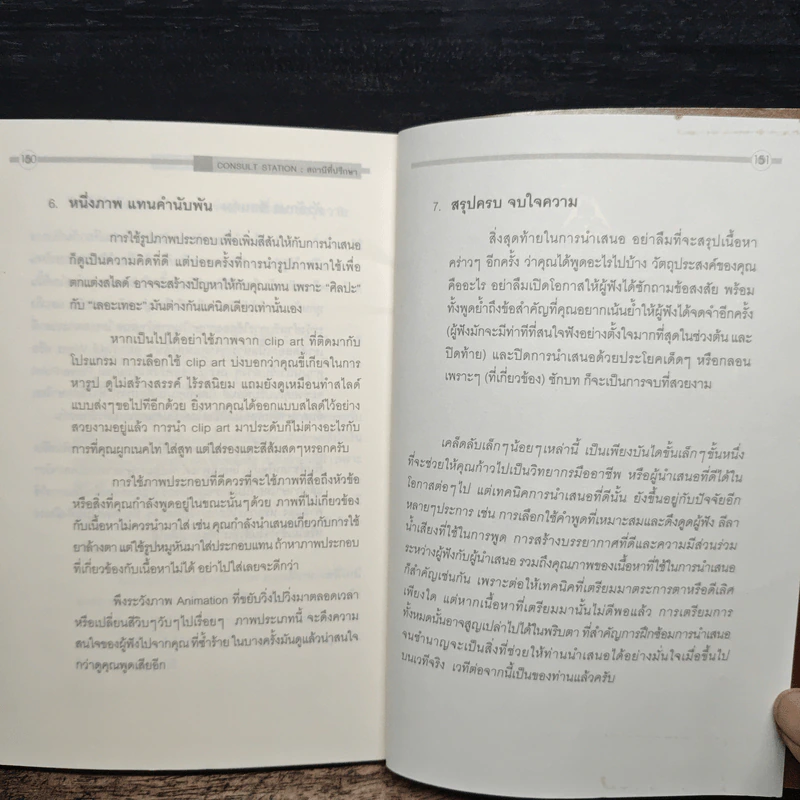 150
CONSULT STATION : สถานีที่ปรึกษา
6. หนึ่งภาพ แทนคำนับพัน
การใช้รูปภาพประกอบ เพื่อเพิ่มสีสันให้กับการนำเสนอ
ก็ดูเป็นความคิดที่ดี แต่บ่อยครั้งที่การนำรูปภาพมาใช้เพื่อ
ตกแต่งสไลด์ อาจจะสร้างปัญหาให้กับคุณแทน เพราะ “ศิลปะ”
กับ “เลอะเทอะ” มันต่างกันแค่นิดเดียวเท่านั้นเอง
หากเป็นไปได้อย่าใช้ภาพจาก clip art ที่ติดมากับ
โปรแกรม การเลือกใช้ clip art บ่งบอกว่าคุณขี้เกียจในการ
หารูป ดูไม่สร้างสรรค์ ไร้รสนิยม แถมยังดูเหมือนทำสไลด์
แบบส่งๆขอไปทีอีกด้วย ยิ่งหากคุณได้ออกแบบสไลด์ไว้อย่าง
สวยงามอยู่แล้ว การนำ clip art มาประดับก็ไม่ต่างอะไรกับ
การที่คุณผูกเนคไท ใส่สูท แต่ใส่รองแตะสีส้มสดๆหรอกครับ
การใช้ภาพประกอบที่ดีควรที่จะใช้ภาพที่สื่อถึงหัวข้อ
หรือสิ่งที่คุณกำลังพูดอยู่ในขณะนั้นๆด้วย ภาพที่ไม่เกี่ยวข้อง
กับเนื้อหาไม่ควรนำมาใส่ เช่น คุณกำลังนำเสนอเกี่ยวกับการใช้
ยาล้างตา แต่ใช้รูปหมูหันมาใส่ประกอบแทน ถ้าหาภาพประกอบ
ที่เกี่ยวข้องกับเนื้อหาไม่ได้ อย่าไปใส่เลยจะดีกว่า
พึงระวังภาพ Animation ที่ขยับวิ่งไปวิ่งมาตลอดเวลา
หรือเปลี่ยนสีวิบๆวับๆไปเรื่อยๆ ภาพประเภทนี้ จะดึงความ
สนใจของผู้ฟังไปจากคุณ ที่ซ้ำร้าย ในบางครั้งมันดูแล้วน่าสนใจ
กว่าดูคุณพูดเสียอีก
151
7. สรุปครบ จบใจความ
สิ่งสุดท้ายในการนำเสนอ อย่าลืมที่จะสรุปเนื้อหา
คร่าวๆ อีกครั้ง ว่าคุณได้พูดอะไรไปบ้าง วัตถุประสงค์ของคุณ
คืออะไร อย่าลืมเปิดโอกาสให้ผู้ฟังได้ซักถามข้อสงสัย พร้อม
ทั้งพูดย้ำถึงข้อสำคัญที่คุณอยากเน้นย้ำให้ผู้ฟังได้จดจำอีกครั้ง
(ผู้ฟังมักจะมีท่าทีที่สนใจฟังอย่างตั้งใจมากที่สุดในช่วงต้น และ
ปิดท้าย) และปิดการนำเสนอด้วยประโยคเด็ดๆ หรือกลอน
เพราะๆ (ที่เกี่ยวข้อง) ซักบท ก็จะเป็นการจบที่สวยงาม
เคล็ดลับเล็กๆน้อยๆเหล่านี้ เป็นเพียงบันไดขั้นเล็กๆขั้นหนึ่ง
ที่จะช่วยให้คุณก้าวไปเป็นวิทยากรมืออาชีพ หรือผู้นำเสนอที่ดีได้ใน
โอกาสต่อๆไป แต่เทคนิคการนำเสนอที่ดีนั้น ยังขึ้นอยู่กับปัจจัยอีก
หลายๆประการ เช่น การเลือกใช้คำพูดที่เหมาะสมและดึงดูดผู้ฟัง ลีลา
น้ำเสียงที่ใช้ในการพูด การสร้างบรรยากาศที่ดีและความมีส่วนร่วม
ระหว่างผู้ฟังกับผู้นำเสนอ รวมถึงคุณภาพของเนื้อหาที่ใช้ในการนำเสนอ
ก็สำคัญเช่นกัน เพราะต่อให้เทคนิคที่เตรียมมาตระการตาหรือดีเลิศ
เพียงใด แต่หากเนื้อหาที่เตรียมมานั้นไม่ดีพอแล้ว การเตรียมการ
ทั้งหมดนั้นอาจสูญเปล่าไปได้ในพริบตา ที่สำคัญการฝึกซ้อมการนำเสนอ
จนชำนาญจะเป็นสิ่งที่ช่วยให้ท่านนำเสนอได้อย่างมั่นใจเมื่อขึ้นไป
บนเวทีจริง เวทีต่อจากนี้เป็นของท่านแล้วครับ